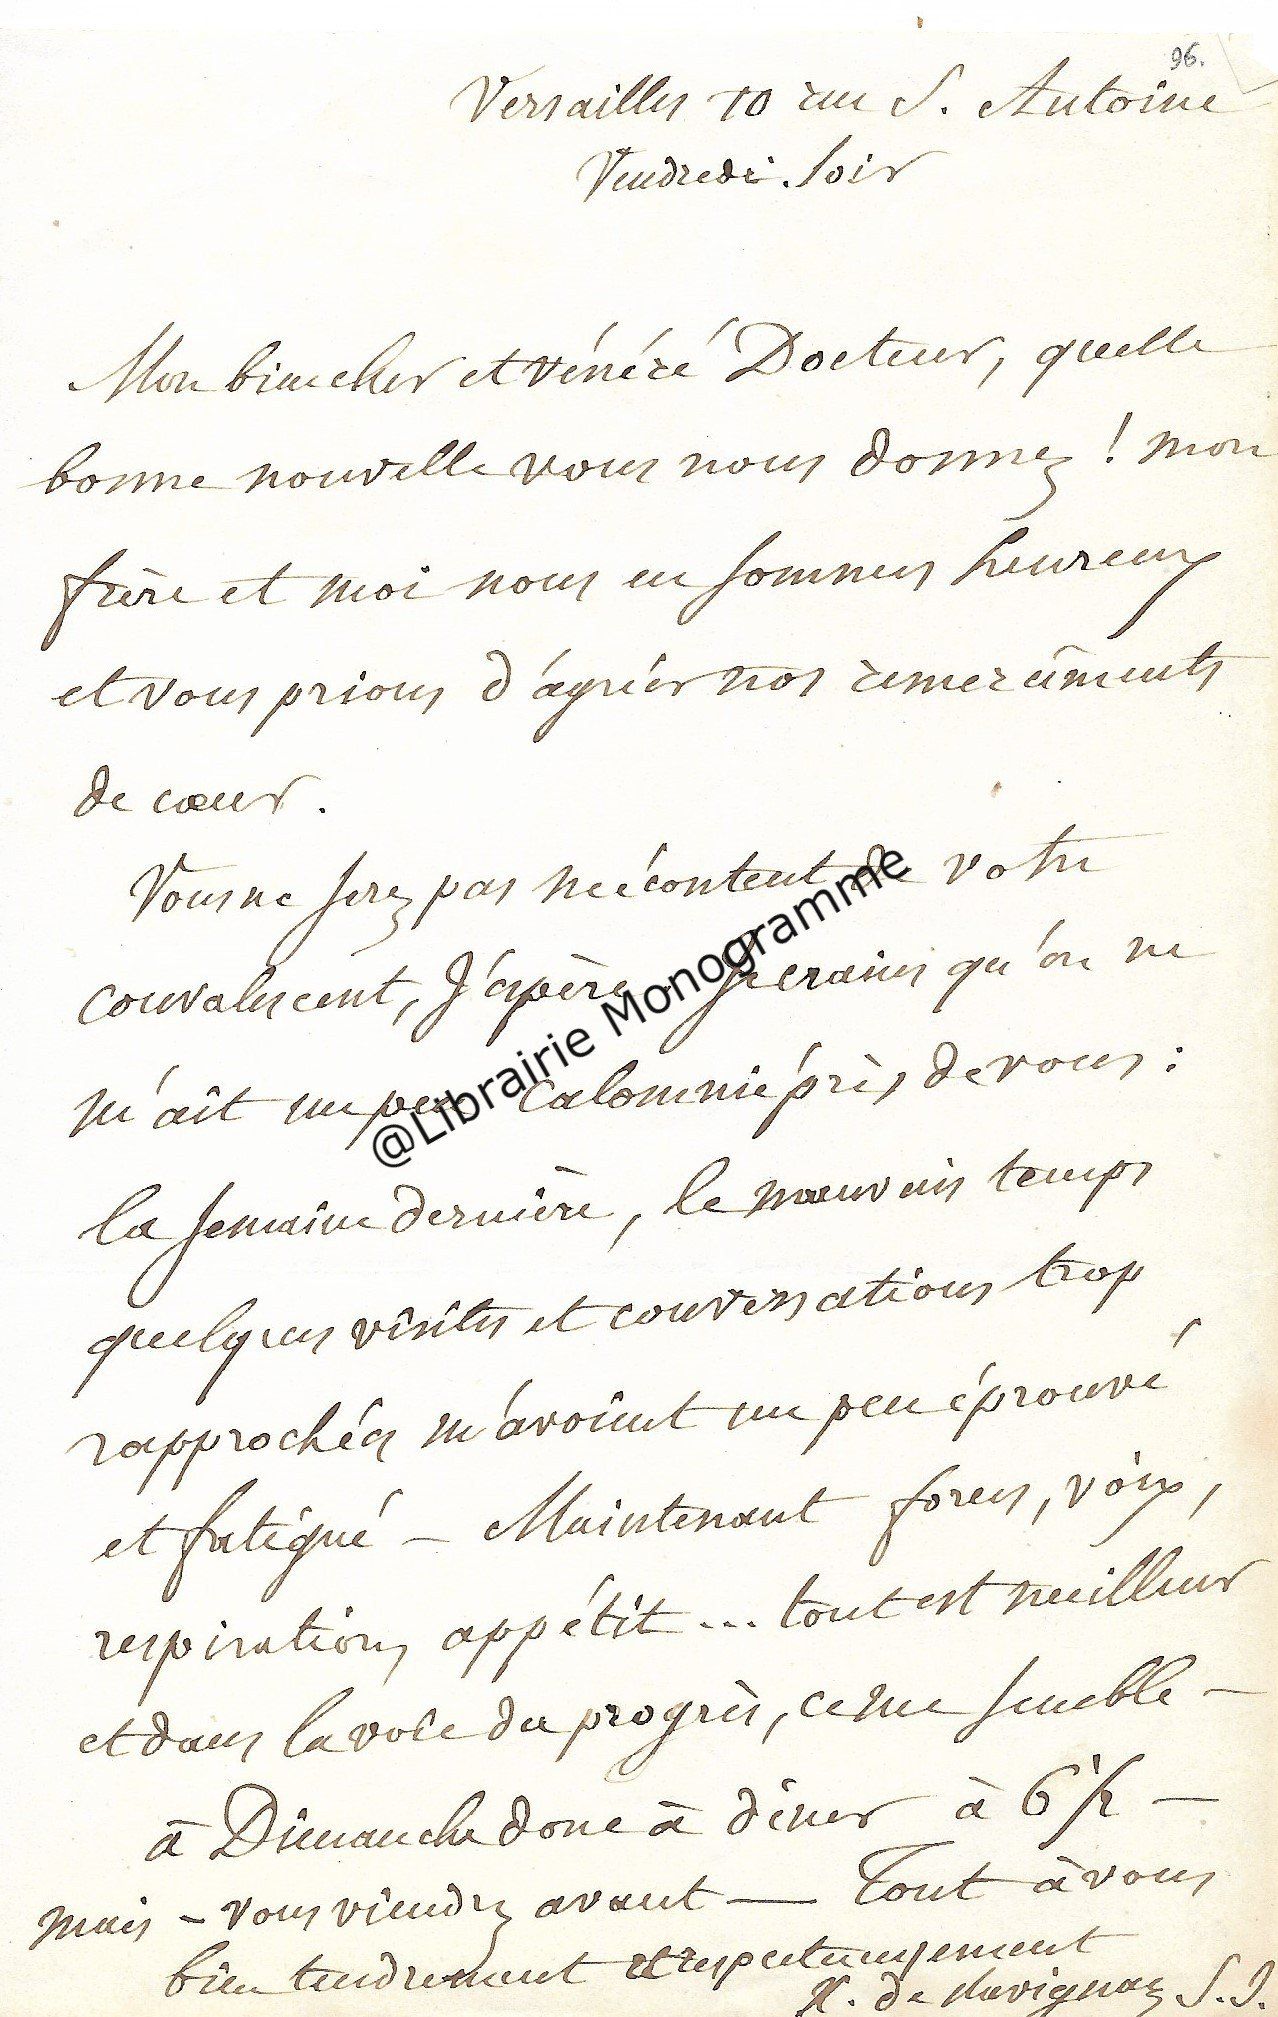 96.
Versailles 10 rue S. Antoine
Vendredi Soir
Mon bien cher et vénéré Docteur, quelle
bonne nouvelle vous nous donnez ! mon
frère et moi nous en sommes heureux
et vous prions d'agréer nos remerciments
de cœur.
Vous ne serez pas mécontent de votre
convalescent, J'espère. Je crains qu'on ne
m'ait un peu Calomnié près de vous :
la semaine dernière, le mauvais temps
quelques visites et conversations trop
rapprochées m'avoient un peu éprouvé
et fatigué — Maintenant forces, voix,
respiration, appétit... tout est meilleur
et dans la voie du progrès, ce me semble —
à Dimanche donc à dîner à 6 h —
mais — vous viendrez avant — Tout à vous
bien tendrement et respectueusement
X. de Ravignan S. J.
@Librairie Monogramme